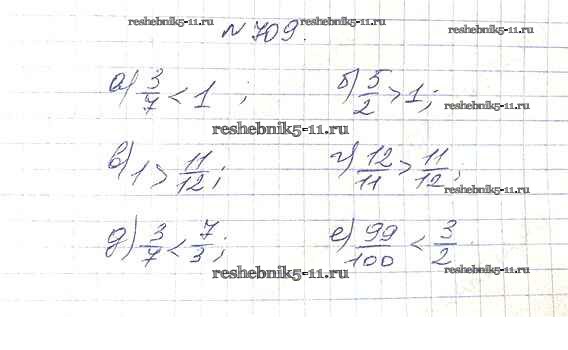 reshebnik5-11.ru reshebnik5-11.ru reshebnik5-11.ru
№ 709.
а) 3/7 < 1 ; б) 5/2 > 1;
reshebnik5-11.ru
reshebnik5-11.ru
в) 1 > 11/12; г) 12/11 > 11/12;
reshebnik5-11.ru
reshebnik5-11.ru
д) 3/7 < 7/3; е) 99/100 < 3/2.
reshebnik5-11.ru reshebnik5-11.ru